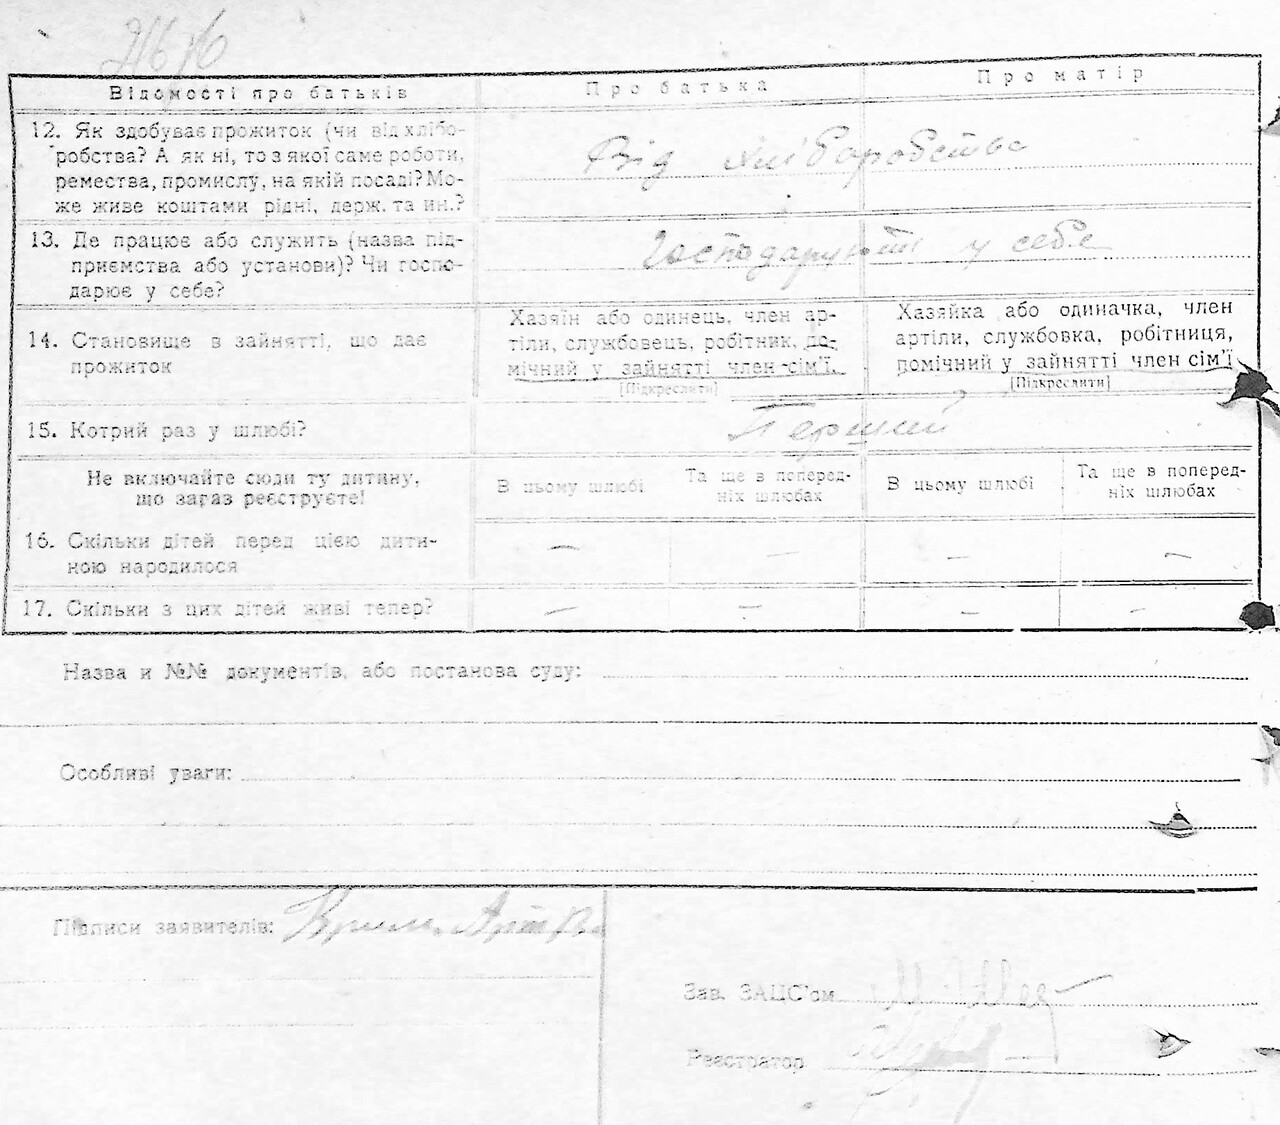 Відомості про батьків
Про батька
Про матір
12. Як здобуває прожиток (чи від хлібо-
робства? А як ні, то з якої саме роботи,
ремества, промислу, на якій посаді? Мо-
же живе коштами рідні, держ. та ин.?
Від хліборобства
13. Де працює або служить (назва під-
приємства або установи)? Чи госпо-
дарює у себе?
Господарують у себе
14. Становище в зайнятті, що дає
прожиток
Хазяїн або одинець, член ар-
тілі, службовець, робітник, по-
мічний у зайнятті член сім'ї.
[Підкреслити]
Хазяйка або одиначка, член
артіли, службовка, робітниця,
помічний у зайнятті член сім'ї
[Підкреслити]
15. Котрий раз у шлюбі?
Перший
Не включайте сюди ту дитину,
що зараз реєструєте!
В цьому шлюбі
Та ще в поперед-
ніх шлюбах
В цьому шлюбі
Та ще в поперед-
ніх шлюбах
16. Скільки дітей перед цією дити-
ною народилося
— — — —
17. Скільки з цих дітей живі тепер?
— — — —
Назва и №№ документів, або постанова суду:
Особливі уваги:
Підписи заявителів:
Зав. ЗАЦС'ом
Реєстратор